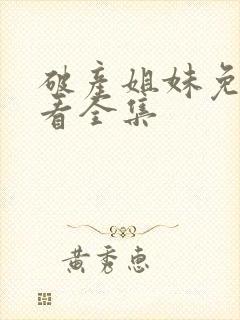 破产姐妹免
看全集
黄秀惠